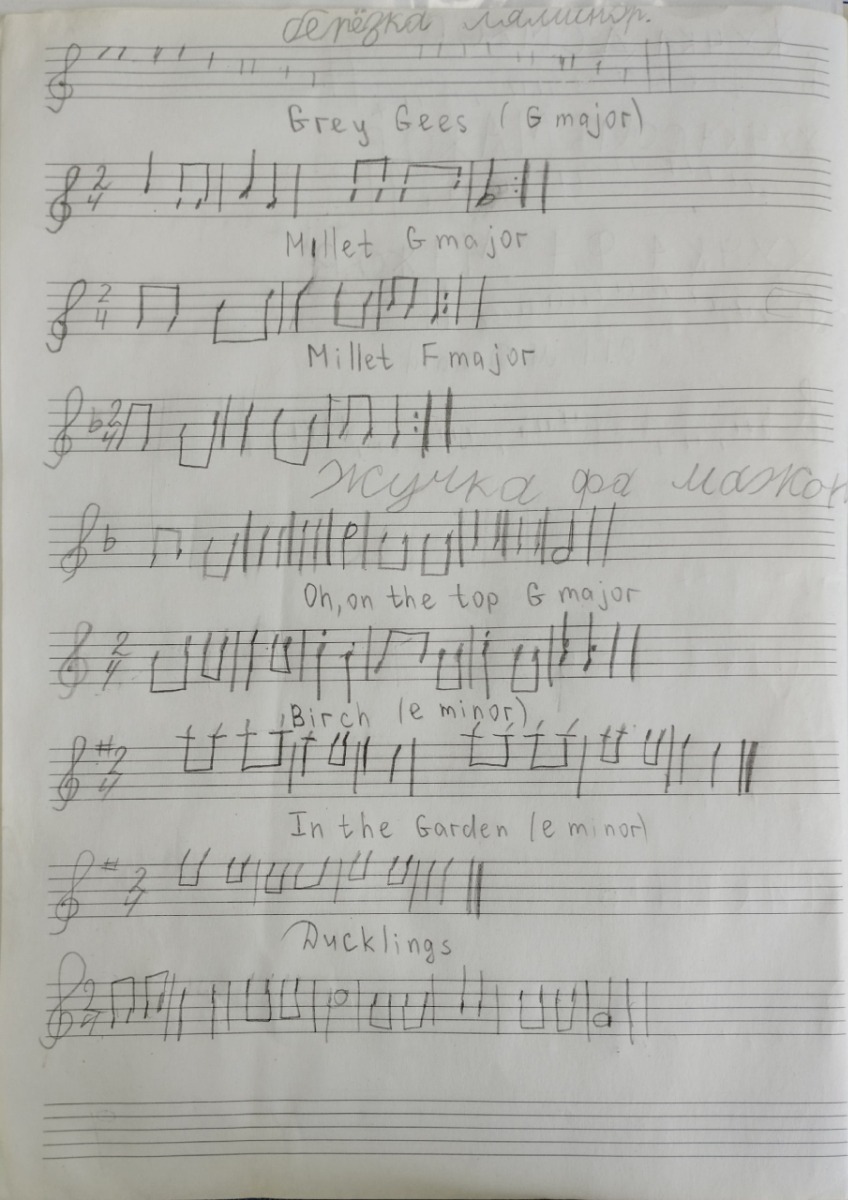 берёзка ля минор.
Grey Gees (G major)
2 4
Millet G major
2 4
Millet F major
2 4
Жучка фа мажор
Oh, on the top G major
2 4
Birch (e minor)
2 4
In the Garden (e minor)
2 4
Ducklings
2 4